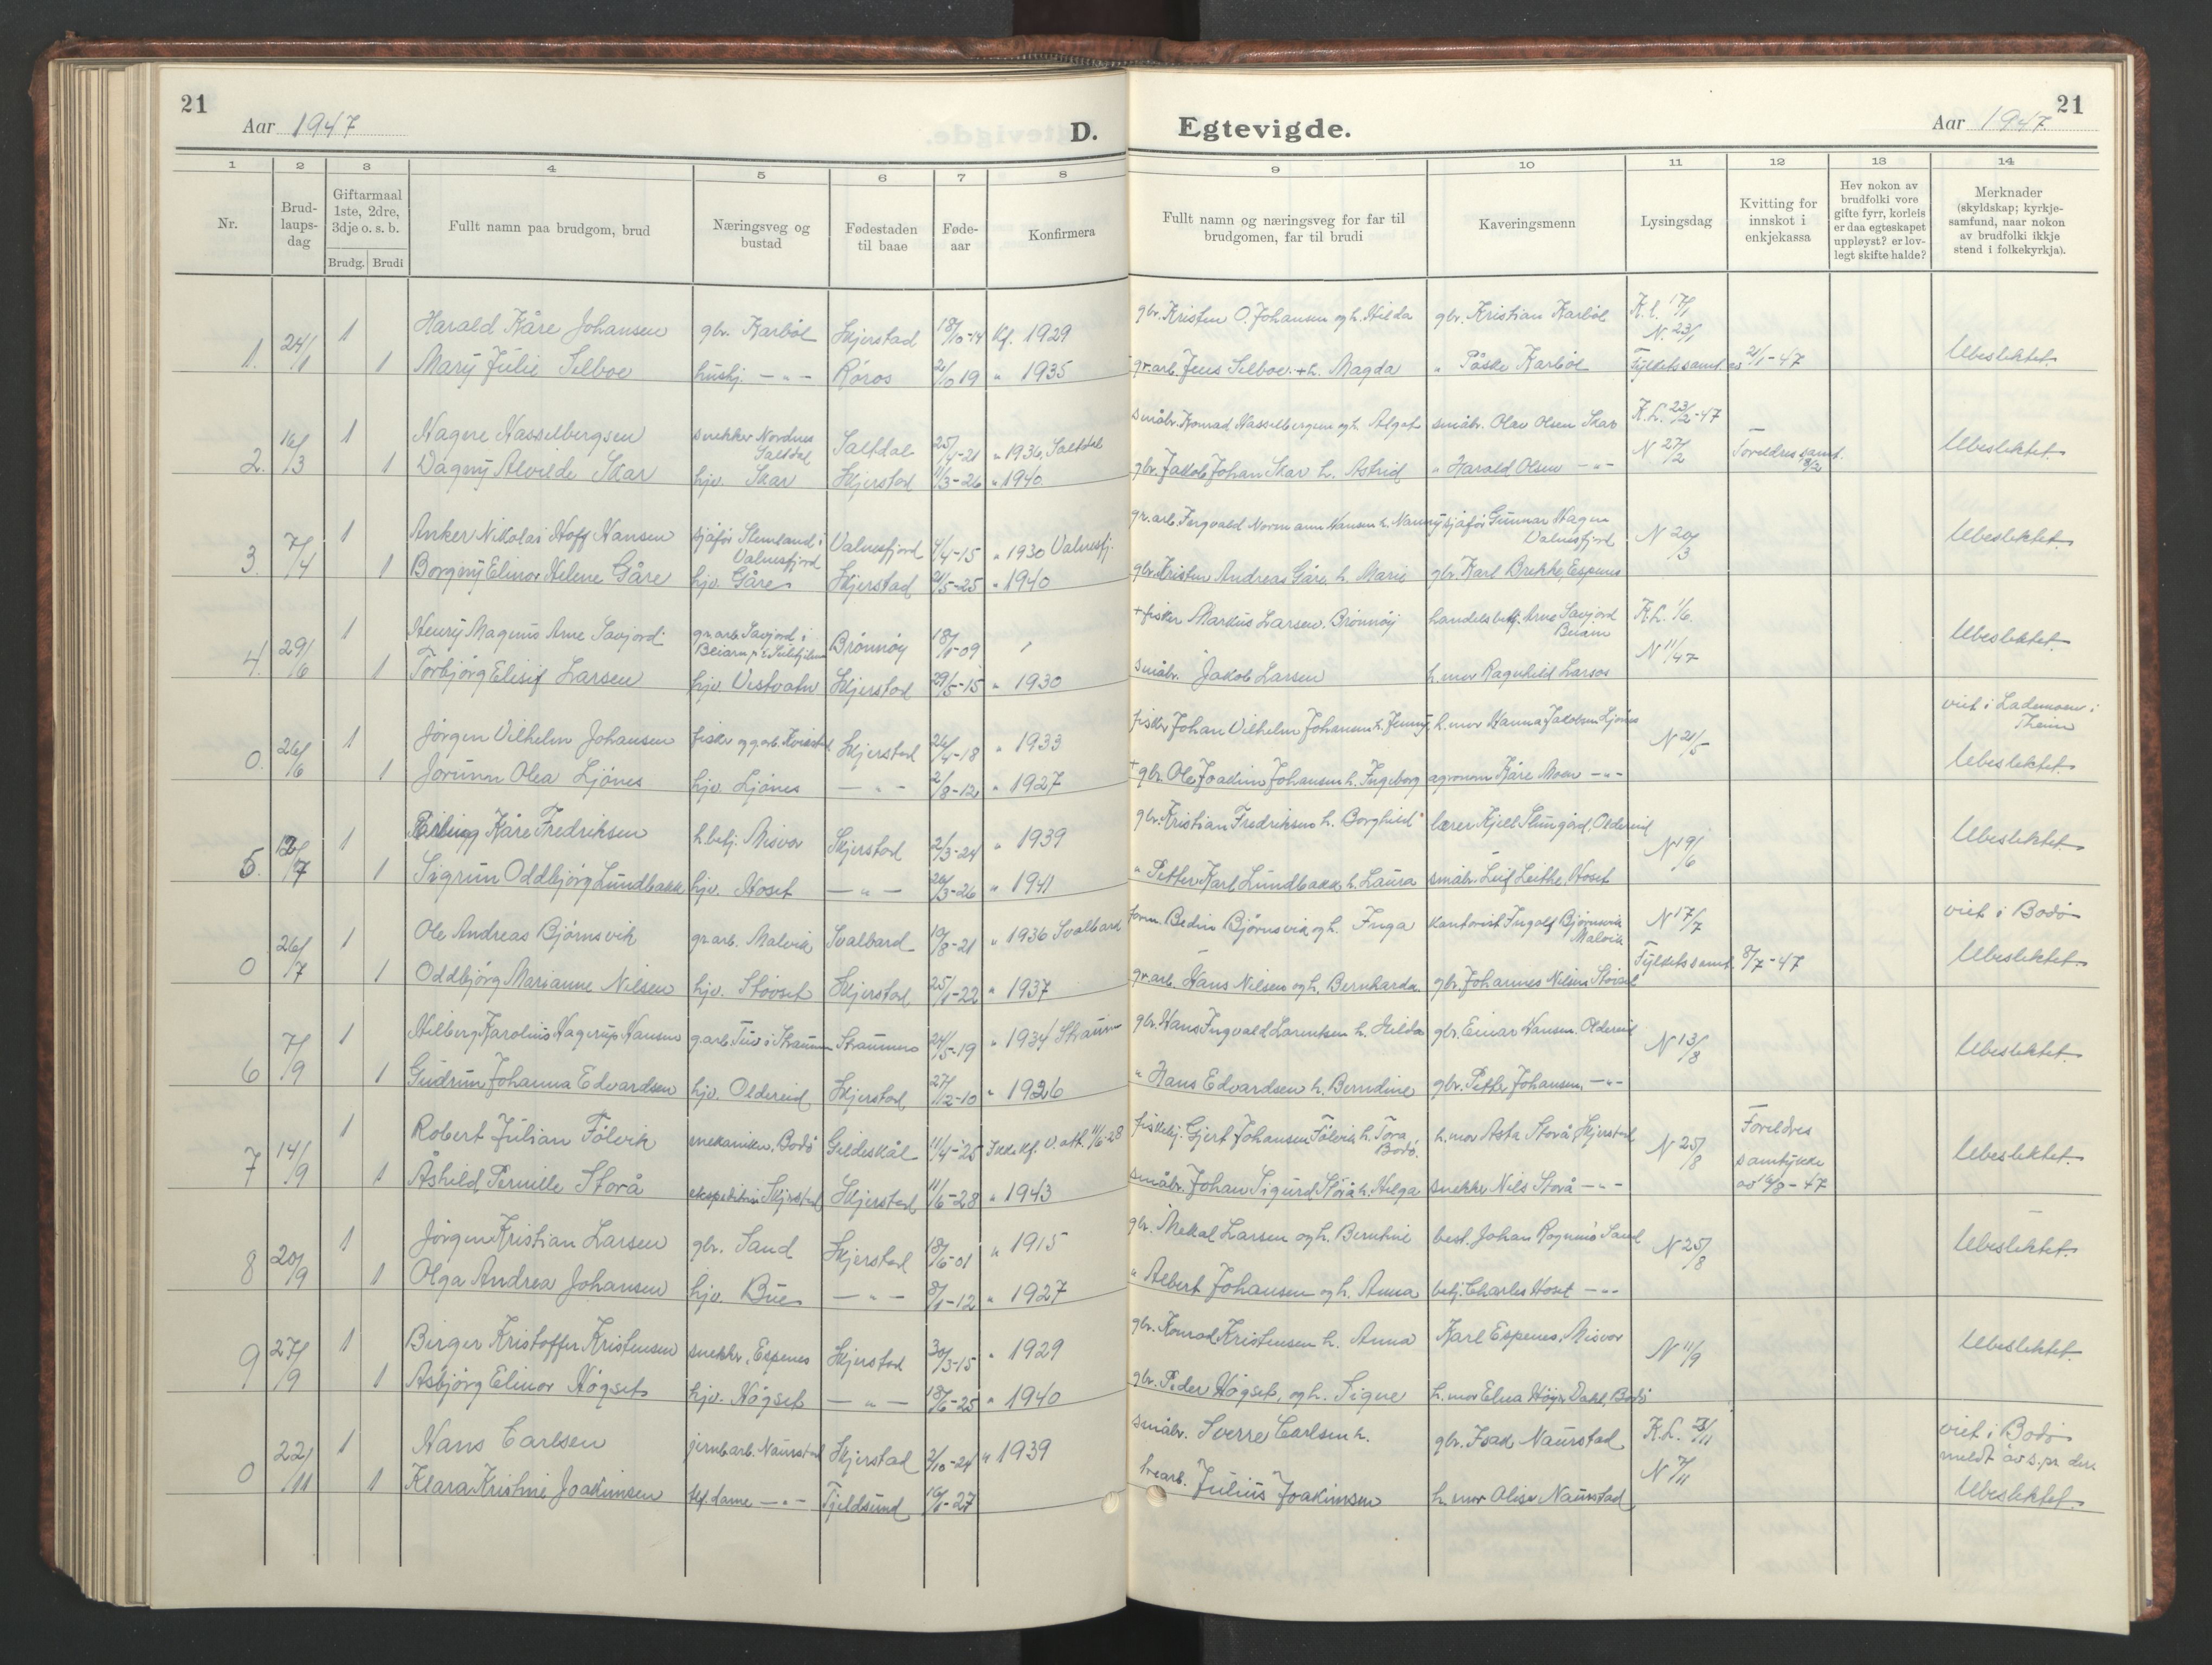 21
Aar 1947
D.
1 2 3 4 5 6 7 8
Nr.
Brud-
laups-
dag
Giftarmaal
1ste, 2dre,
3dje o. s. b.
Brudg. Brudi
Fullt namn paa brudgom, brud
Næringsveg og
bustad
Fødestaden
til baae
Føde-
aar
Konfirmera
1. 24/1 1 Harald Kåre Johansen gbr. Karbøl Skjerstad 18/10-14 Kf. 1929
1 Mary Julie Selboe husbj. -"- Røros 2/10 19 " 1935
2. 16/3 1 Hagere Hasselbergsen snekker Nordnes Saltdal Saltdal 25/4-21 " 1936, Saltdal
1 Dagny Alvilde Skar hjv. Skar Skjerstad 11/3-26 " 1940
3. 7/4 1 Anker Nikolai Hoff Hansen sjåfør Stemland i Valnesfjord Valnesfjord 4/4-15 " 1930 Valnesfj.
1 Borgny Elinor Helene Gåre hjv. Gåre Skjerstad 21/5-25 " 1940
4. 29/6 1 Henry Magnus Arne Savjord gr.arb. Savjord i Beiarn Brønnøy 18/1-09
1 Torbjørg Elisif Larsen hjv. Vestvatn Skjerstad 29/5-15 " 1930
0. 26/6 1 Jørgen Vilhelm Johansen fisker og g.arb. Skjerstad 26/4-18 " 1933
1 Jorunn Olea Ljønes hjv. Ljønes -"- 2/8-12 " 1927
5. 12/7 1 Erling Kåre Fredriksen h.betj. Misvær Skjerstad 2/3-24 " 1939
1 Sigrun Oddbjørg Lundbakk hjv. Hoset -"- 20/3-26 " 1941
0 26/7 1 Ole Andreas Bjørnsvik gr.arb. Malvik Svalbard 19/8-21 " 1936 Svalbard
1 Oddbjørg Marianne Nilsen hjv. Støvset Skjerstad 25/1-22 " 1937
6 7/9 1 Hilberg Karolius Hagerup Hansen g.arb. Tuv i Straumen Straumen 24/5-19 " 1934 Straum-
1 Gudrun Johanna Edvardsen hjv. Oldereid Skjerstad 27/12-10 " 1926
7 14/9 1 Robert Julian Fölvik mekaniker, Bodø Gildeskål 11/4-25 Ikke kf. V. att. 11/6-28
1 Åshild Pernille Storå Skjerstad Skjerstad 11/6-28 " 1943
8 20/9 1 Jørgen Kristian Larsen gbr. Sand Skjerstad 18/6-01 " 1915
1 Olga Andrea Johansen hjv. Bue -"- 8/1-12 " 1927
9 27/9 1 Birger Kristoffer Kristensen snekker, Espenes Skjerstad 30/3-15 " 1929
1 Åsbjørg Elinor Høgset hjv. Høgset -"- 18/6-25 " 1940
0 22/11 1 Hans Carlsen jernb.arb. Naurstad Skjerstad 3/10-24 " 1939
1 Klara Kristine Joakimsen tlf.dame -"- Tjeldsund 16/1-27
Egtevigde.
Aar 1947.
21
9 10 11 12 13 14
Fullt namn og næringsveg for far til
brudgomen, far til brudi
Kaveringsmenn
Lysingsdag
Kvitting for
innskot i
enkjekassa
Hev nokon av
brudfolki vore
gifte fyrr, korleis
er daa egteskapet
uppløyst? er lov-
legt skifte halde?
Merknader
(skyldskap; kyrkje-
samfund, naar nokon
av brudfolki ikkje
stend i folkekyrkja).
gbr. Kristen O. Johansen og h. Hilda gbr. Kristian Karbøl K.l. 17/1 N. 23/1
gr.arb. Jens Selboe + h. Magda " Påske Karbøl Fylketssamt. av 21/1-47 Ubeslektet.
småbr. Konrad Hasselbergsen og h. Algot småbr. Olav Olsen Skar K.L. 23/2-47
gbr. Jakob Johan Skar h. Astrid " Harald Olsen -"- N 27/2 Foreldres samt. 8/2 Ubeslektet.
gr.arb. Ingvald Normann Hansen h. Nanny sjåfør Gunnar Hagen Valnesfjord N 20/3 Ubeslektet.
gbr. Kristen Andreas Gåre, h. Marie gbr. Karl Brekke, Espenes
+ fisker Markus Larsen. Brønnøy handelsbetj. Arne Savjord Beiarn K.L. 1/6.
småbr. Jakob Larsen h.mor Ragnhild Larsos N 11/47 Ubeslektet.
fisker Johan Vilhelm Johansen h. Jenny h.mor Hanna Jakobsen Ljønes N 21/5 viet i Lademoen i Thеim
+ gbr. Ole Joakim Johansen h. Ingeborg agronom Kåre Moen -"- Ubeslektet.
gbr. Kristian Fredriksen h. Borghild lærer Kjell Slungård, Oldereid N 19/6 Ubeslektet.
" Petter Karl Lundbakk h. Laura småbr. Leif Leithe, Hoset
form. Bedin Bjørnsvik og h. Inga kontorist Ingolf Bjørnsvik Malvik N 17/7 viet i Bodø
gr.arb. Hans Nilsen og h. Bernharda gbr. Johannes Nilsen Støvset Fylketssamt. 8/7-47 Ubeslektet
gbr. Hans Ingvald Larentsen h. Hilda gbr. Einar Hansen. Oldereid N 13/8 Ubeslektet.
" Hans Edvardsen h. Berndine gbr. Petter Johansen -"-
fiskehj. Gjert Johansen Fölvik h. Tora Bodø. h.mor Asta Storå, Skjerstad N 25/8 Foreldres samtykke av 16/8-47 Ubeslektet.
småbr. Johan Sigurd Storå h. Helga snekker Nils Storå -"-
gbr. Mekal Larsen og h. Berntine best. Johan Rognmo Sand N 25/8 Ubeslektet.
" Albert Johansen og h. Anna betj. Charles Hoset -"-
gbr. Konrad Kristensen h. Anna Karl Espenes. Misvær N 11/9 Ubeslektet.
gbr. Peder Høgset, og h. Signe h.mor Elna Dahl, Bodø
småbr. Sverre Carlsen h. gbr. Isak Naurstad K.L. viet i Bodø meldt av s.pr. der.
Julius Joakimsen h.mor Alise Naurstad N 7/11 Ubeslektet.